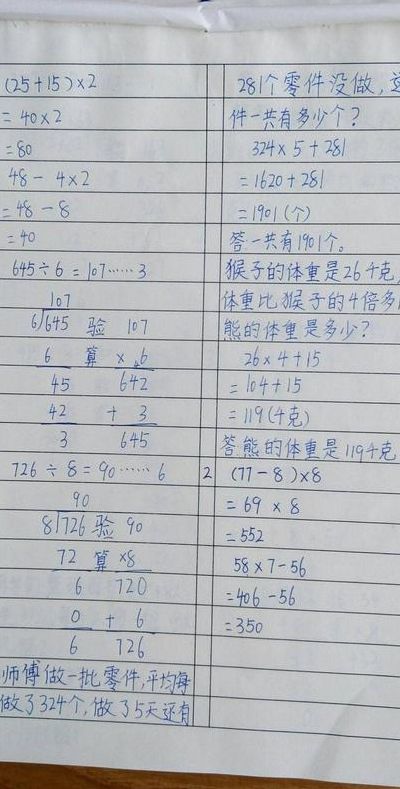 (25+15)×2
=40×2
=80
48-4×2
=48-8
=40
645÷6=107……3
107
6)645 验 107
6 算 × 6
45 642
42 + 3
3 645
726÷8=90……6
90
8)726 验 90
72 算 ×8
6 720
0 + 6
6 726
师傅做一批零件,平均每
做了324个,做了5天还有
281个零件没做,这
件一共有多少个?
324×5+281
=1620+281
=1901(个)
答一共有1901个。
猴子的体重是26千克,
体重比猴子的4倍多
熊的体重是多少?
26×4+15
=104+15
=119(千克)
答熊的体重是119千克
2 (77-8)×8
=69×8
=552
58×7-56
=406-56
=350